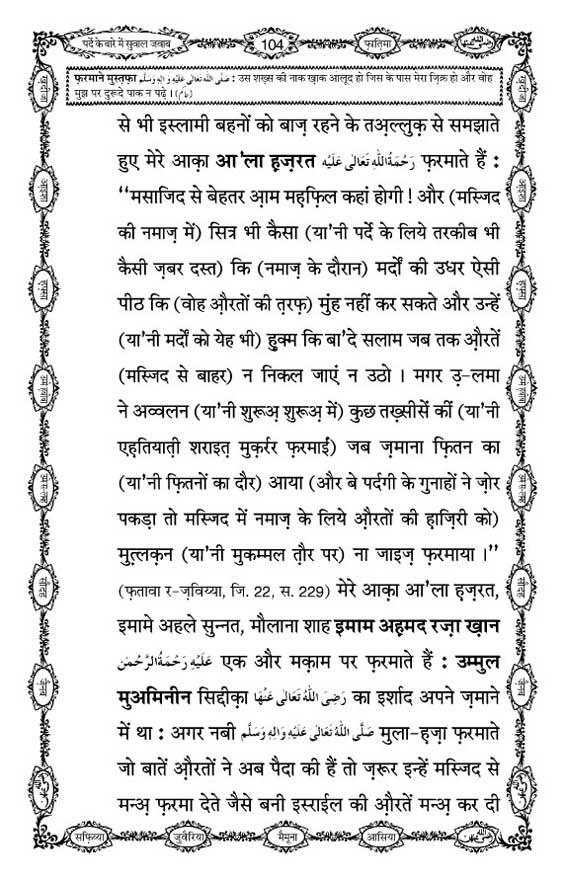 पर्दे के बारे में सुवाल जवाब
104
फ़ातिमा
फ़रमाने मुस्तफ़ा صَلَّى اللهُ تَعَالٰى عَلَيْهِ وَاٰلِهٖ وَسَلَّم : उस शख़्स की नाक ख़ाक आलूद हो जिस के पास मेरा ज़िक्र हो और वोह
मुझ पर दुरूदे पाक न पढ़े। (حاكم)
से भी इस्लामी बहनों को बाज़ रहने के तअ़ल्लुक़ से समझाते
हुए मेरे आक़ा आ'ला हज़रत رَحْمَةُ اللهِ تَعَالٰى عَلَيْه फ़रमाते हैं :
“मसाजिद से बेहतर आम महफ़िल कहां होगी ! और (मस्जिद
की नमाज़ में) सित्र भी कैसा (या'नी पर्दे के लिये तरकीब भी
कैसी ज़बर दस्त) कि (नमाज़ के दौरान) मर्दों की उधर ऐसी
पीठ कि (वोह औ़रतों की त़रफ़) मुंह नहीं कर सकते और उन्हें
(या'नी मर्दों को येह भी) हुक्म कि बा'दे सलाम जब तक औ़रतें
(मस्जिद से बाहर) न निकल जाएं न उठो । मगर उ़-लमा
ने अव्वलन (या'नी शुरूअ़ शुरूअ़ में) कुछ तख़्सीसें कीं (या'नी
एह़तियात़ी शराइत़ मुक़र्रर फ़रमाईं) जब ज़माना फ़ितन का
(या'नी फ़ितनों का दौर) आया (और बे पर्दगी के गुनाहों ने ज़ोर
पकड़ा तो मस्जिद में नमाज़ के लिये औ़रतों की ह़ाज़िरी को)
मुत़्लक़न (या'नी मुकम्मल त़ौर पर) ना जाइज़ फ़रमाया ।”
(फ़तावा र-ज़विय्या, जि. 22, स. 229) मेरे आक़ा आ'ला ह़ज़रत,
इमामे अहले सुन्नत, मौलाना शाह इमाम अह़मद रज़ा ख़ान
عَلَيْهِ رَحْمَةُ الرَّحْمٰن एक और मक़ाम पर फ़रमाते हैं : उम्मुल
मुअमिनीन सिद्दीक़ा رَضِىَ اللهُ تَعَالٰى عَنْهَا का इर्शाद अपने ज़माने
में था : अगर नबी صَلَّى اللهُ تَعَالٰى عَلَيْهِ وَاٰلِهٖ وَسَلَّم मुला-ह़ज़ा फ़रमाते
जो बातें औ़रतों ने अब पैदा की हैं तो ज़रूर इन्हें मस्जिद से
मन्अ़ फ़रमा देते जैसे बनी इस्राईल की औ़रतें मन्अ़ कर दी
सफ़िय्या
जुवैरिया
मैमूना
आसिया